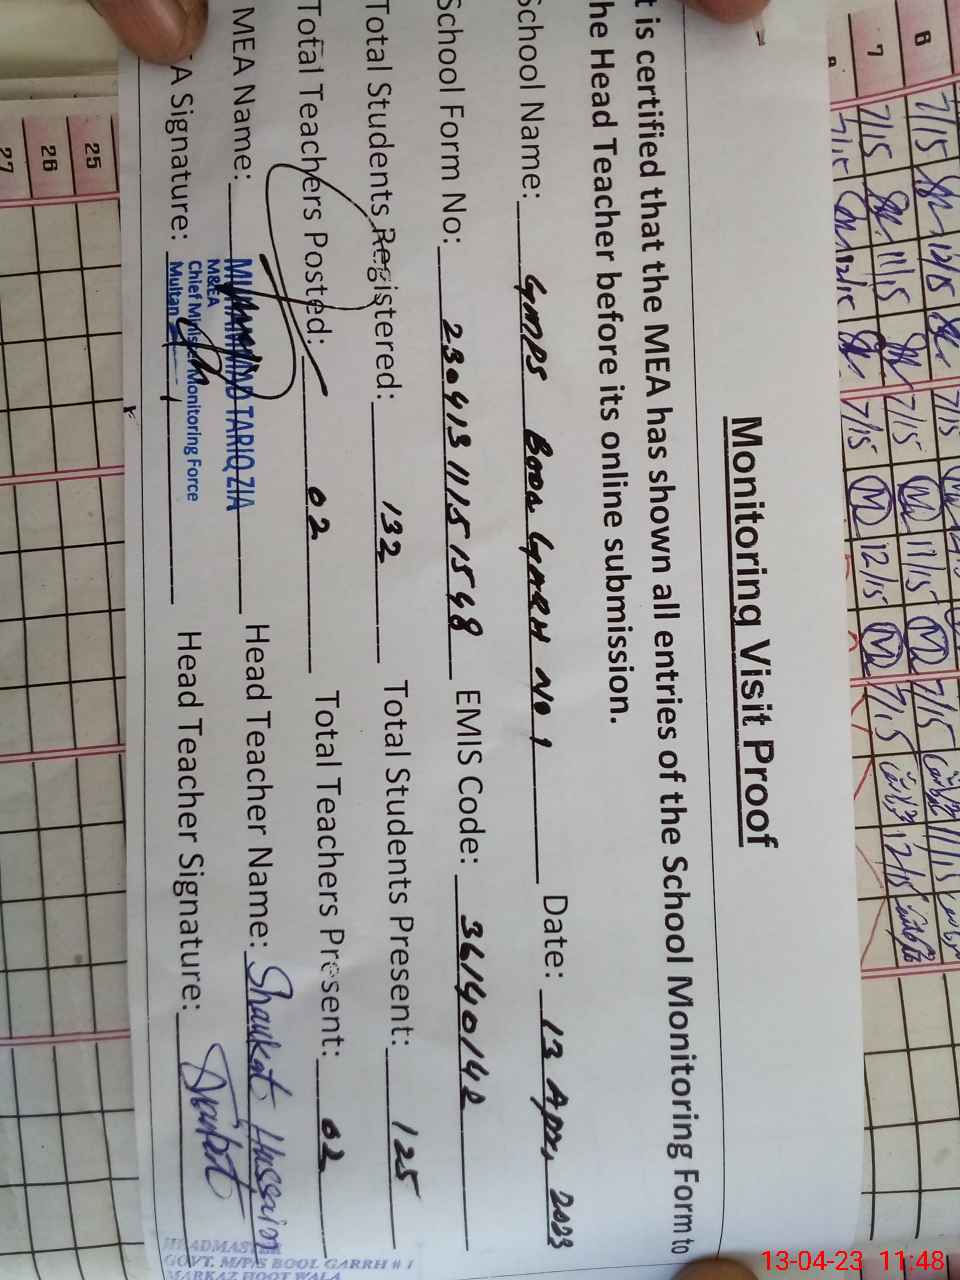 Monitoring Visit Proof
t is certified that the MEA has shown all entries of the School Monitoring Form to
he Head Teacher before its online submission.
School Name: GMPS Bool GARRH No 1 Date: 13 Apr, 2023
School Form No: 230413111551548 EMIS Code: 36140142
Total Students Registered: 132 Total Students Present: 125
Total Teachers Posted: 02 Total Teachers Present: 02
MEA Name: MUHAMMAD TARIQ ZIA Head Teacher Name: Shaukat Hussain
M&EA
Chief Minister Monitoring Force
Multan
A Signature: Head Teacher Signature:
HEADMASTER
GOVT. M/P/S BOOL GARRH # 1
MARKAZ HOOT WALA
6 7/15 12/15 7/15
7 7/15 11/15 7/15 11/15 7/15 11/15
8 7/15 12/15 7/15 12/15 7/15 12/15
25
26
27
13-04-23 11:48